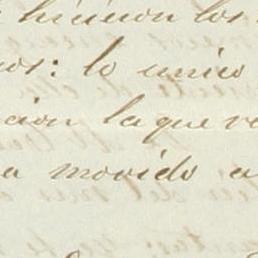 hicieron los
os: lo unico
cion la que re
a movido a